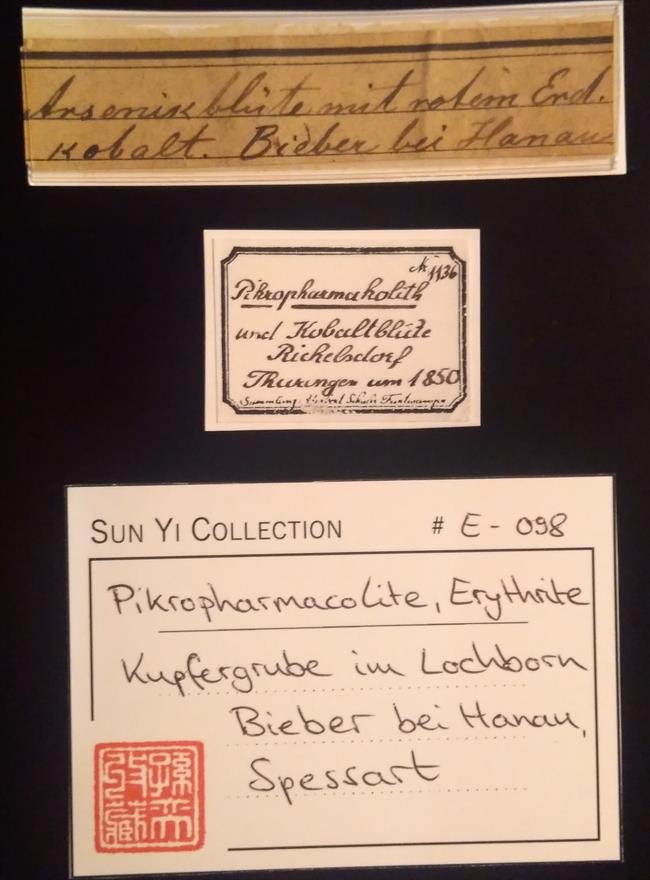 Arsenikblüte mit rotem Erd.
kobalt. Bieber bei Hanau
№ 1136
Pikropharmakolith
und Kobaltblüte
Richelsdorf
Thuringen um 1850
Sammlung:
SUN YI COLLECTION # E - 098
Pikropharmacolite, Erythrite
Kupfergrube im Lochborn
Bieber bei Hanau,
Spessart